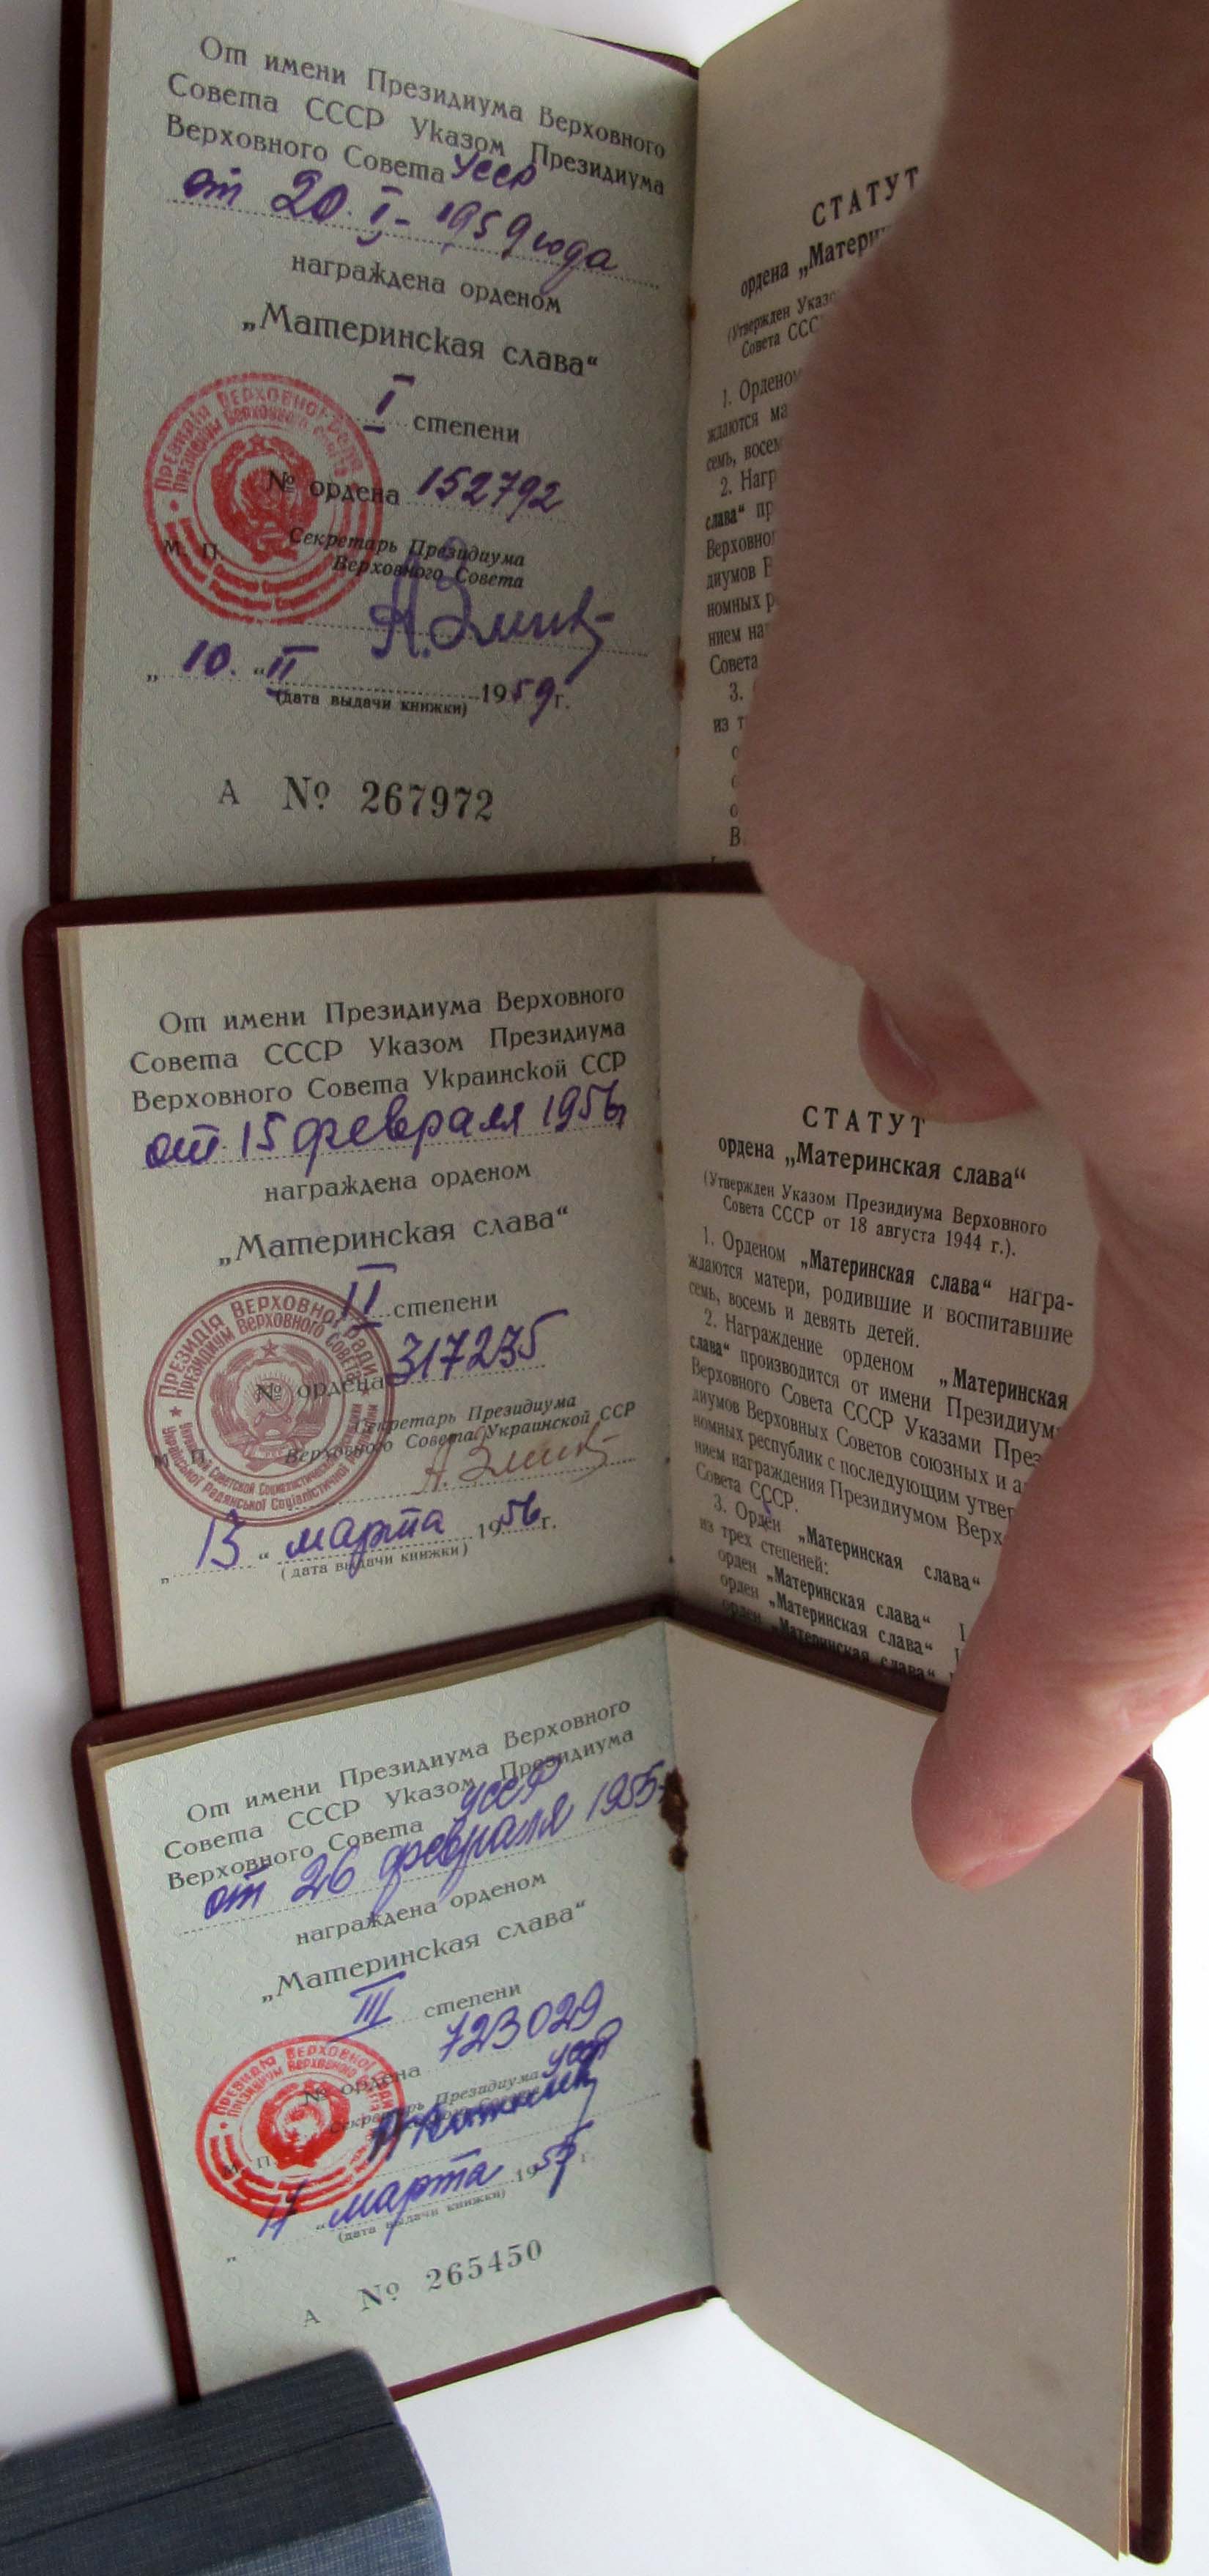 От имени Президиума Верховного
Совета СССР Указом Президиума
Верховного Совета УССР
от 20. I - 1959 года
награждена орденом
„Материнская слава“
I степени
№ ордена 152792
Секретарь Президиума
Верховного Совета
М. П.
„ 10. “ II 1959 г.
(дата выдачи книжки)
А № 267972
СТАТУТ
ордена „Матери
(Утвержден Указ
Совета ССС
1. Орденом
ждаются ма
семь, восем
2. Нагр
слава“ пр
Верховно
диумов В
номных р
нием на
Совета
3.
из т
о
о
о
В
От имени Президиума Верховного
Совета СССР Указом Президиума
Верховного Совета Украинской ССР
от 15 февраля 1956 г
награждена орденом
„Материнская слава“
II степени
№ ордена 317235
Секретарь Президиума
Верховного Совета Украинской ССР
М. П.
„ 13 “ марта 1956 г.
(дата выдачи книжки)
ПРЕЗИДІЯ ВЕРХОВНОЇ РАДИ
ПРЕЗИДИУМ ВЕРХОВНОГО СОВЕТА
Української Радянської Соціалістичної
Советской Социалистической
СТАТУТ
ордена „Материнская слава“
(Утвержден Указом Президиума Верховного
Совета СССР от 18 августа 1944 г.).
1. Орденом „Материнская слава“ награ-
ждаются матери, родившие и воспитавшие
семь, восемь и девять детей.
2. Награждение орденом „Материнская
слава“ производится от имени Президиум
Верховного Совета СССР Указами През
диумов Верховных Советов союзных и а
номных республик с последующим утвер
нием награждения Президиумом Верх
Совета СССР.
3. Орден „Материнская слава“
из трех степеней:
орден „Материнская слава“ I
орден „Материнская слава“ I
орден „Материнская слава“
От имени Президиума Верховного
Совета СССР Указом Президиума
Верховного Совета УССР
от 26 февраля 1955 г
награждена орденом
„Материнская слава“
III степени
№ ордена 723029
Секретарь Президиума УССР
М. П.
„ 11 “ марта 1955 г.
(дата выдачи книжки)
А № 265450